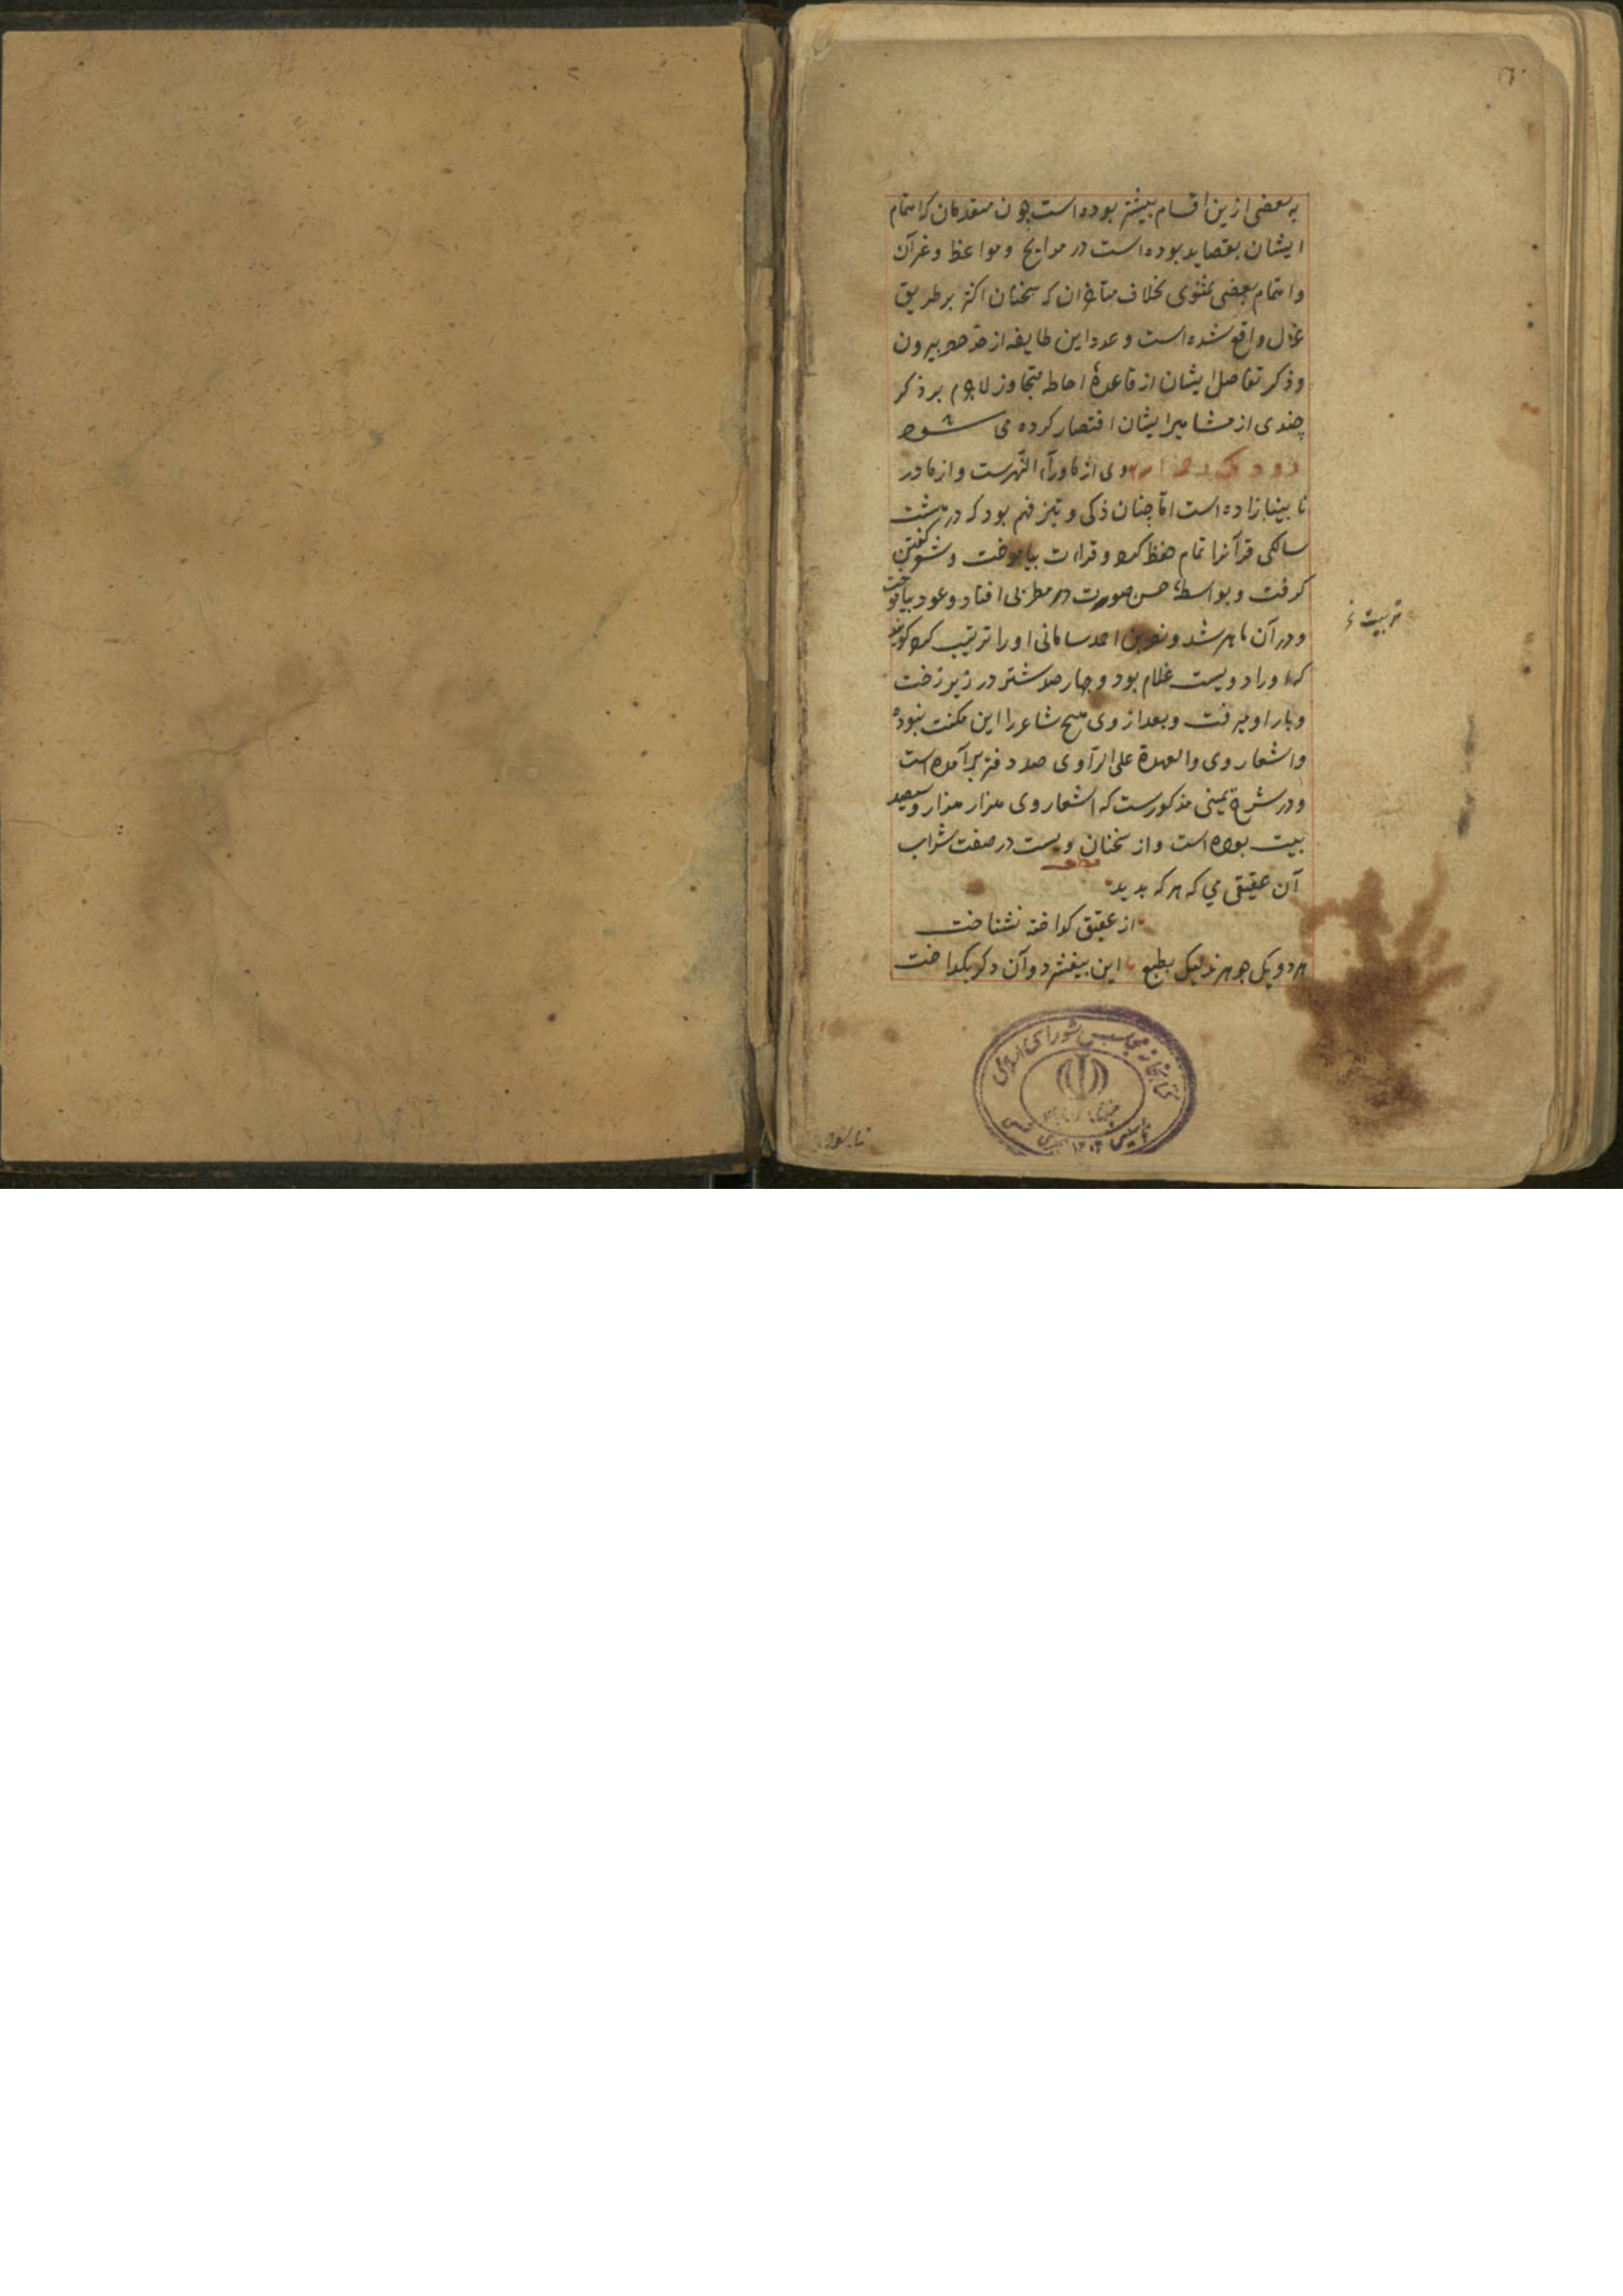 به بعضی ازین اقسام بیشتر بوده است چون متقدمان که اهتمام
ایشان بقصاید بوده است در مدایح و مواعظ و غیر آن
و اهتمام بعضی بمثنوی بخلاف متأخران که سخنان اکثر بر طریق
غزل واقع شده است و عدد این طایفه از حد حصر بیرون
و ذکر تفاصیل ایشان از قاعدهٔ احاطه متجاوز لاجرم بر ذکر
چندی از مشاهیر ایشان اقتصار کرده می شود
رودکی وی از ماوراء النهرست و از مادر
نابینا زاده است اما چنان ذکی و تیز فهم بود که در هشت
سالکی قرآنرا تمام حفظ کرد و قراءت بیاموخت و شعر گفتن
کرفت و بواسطهٔ حسن صورت در مطربی افتاد و عود بیاموخت
و در آن ماهر شد و نصر بن احمد سامانی او را ترتیب کرد کویند
که او را دویست غلام بود و چهارصد شتر در زیر رخت
و بار او میرفت و بعد از وی هیچ شاعر را این مکنت نبوده
و اشعار وی و العهدة علی الرّاوی صد دفتر برآمده است
و در شرح یمینی مذکورست که اشعار وی هزار هزار و سیصد
بیت بوده است و از سخنان ویست در صفت شراب
آن عقیقی می که هر که بدید
از عقیق کداخته نشناخت
هر دو یک جوهرند لیک بطبع این بیفشرد و آن دکر بکداخت
تربیت
کتابخانه مجلس شورای اسلامی